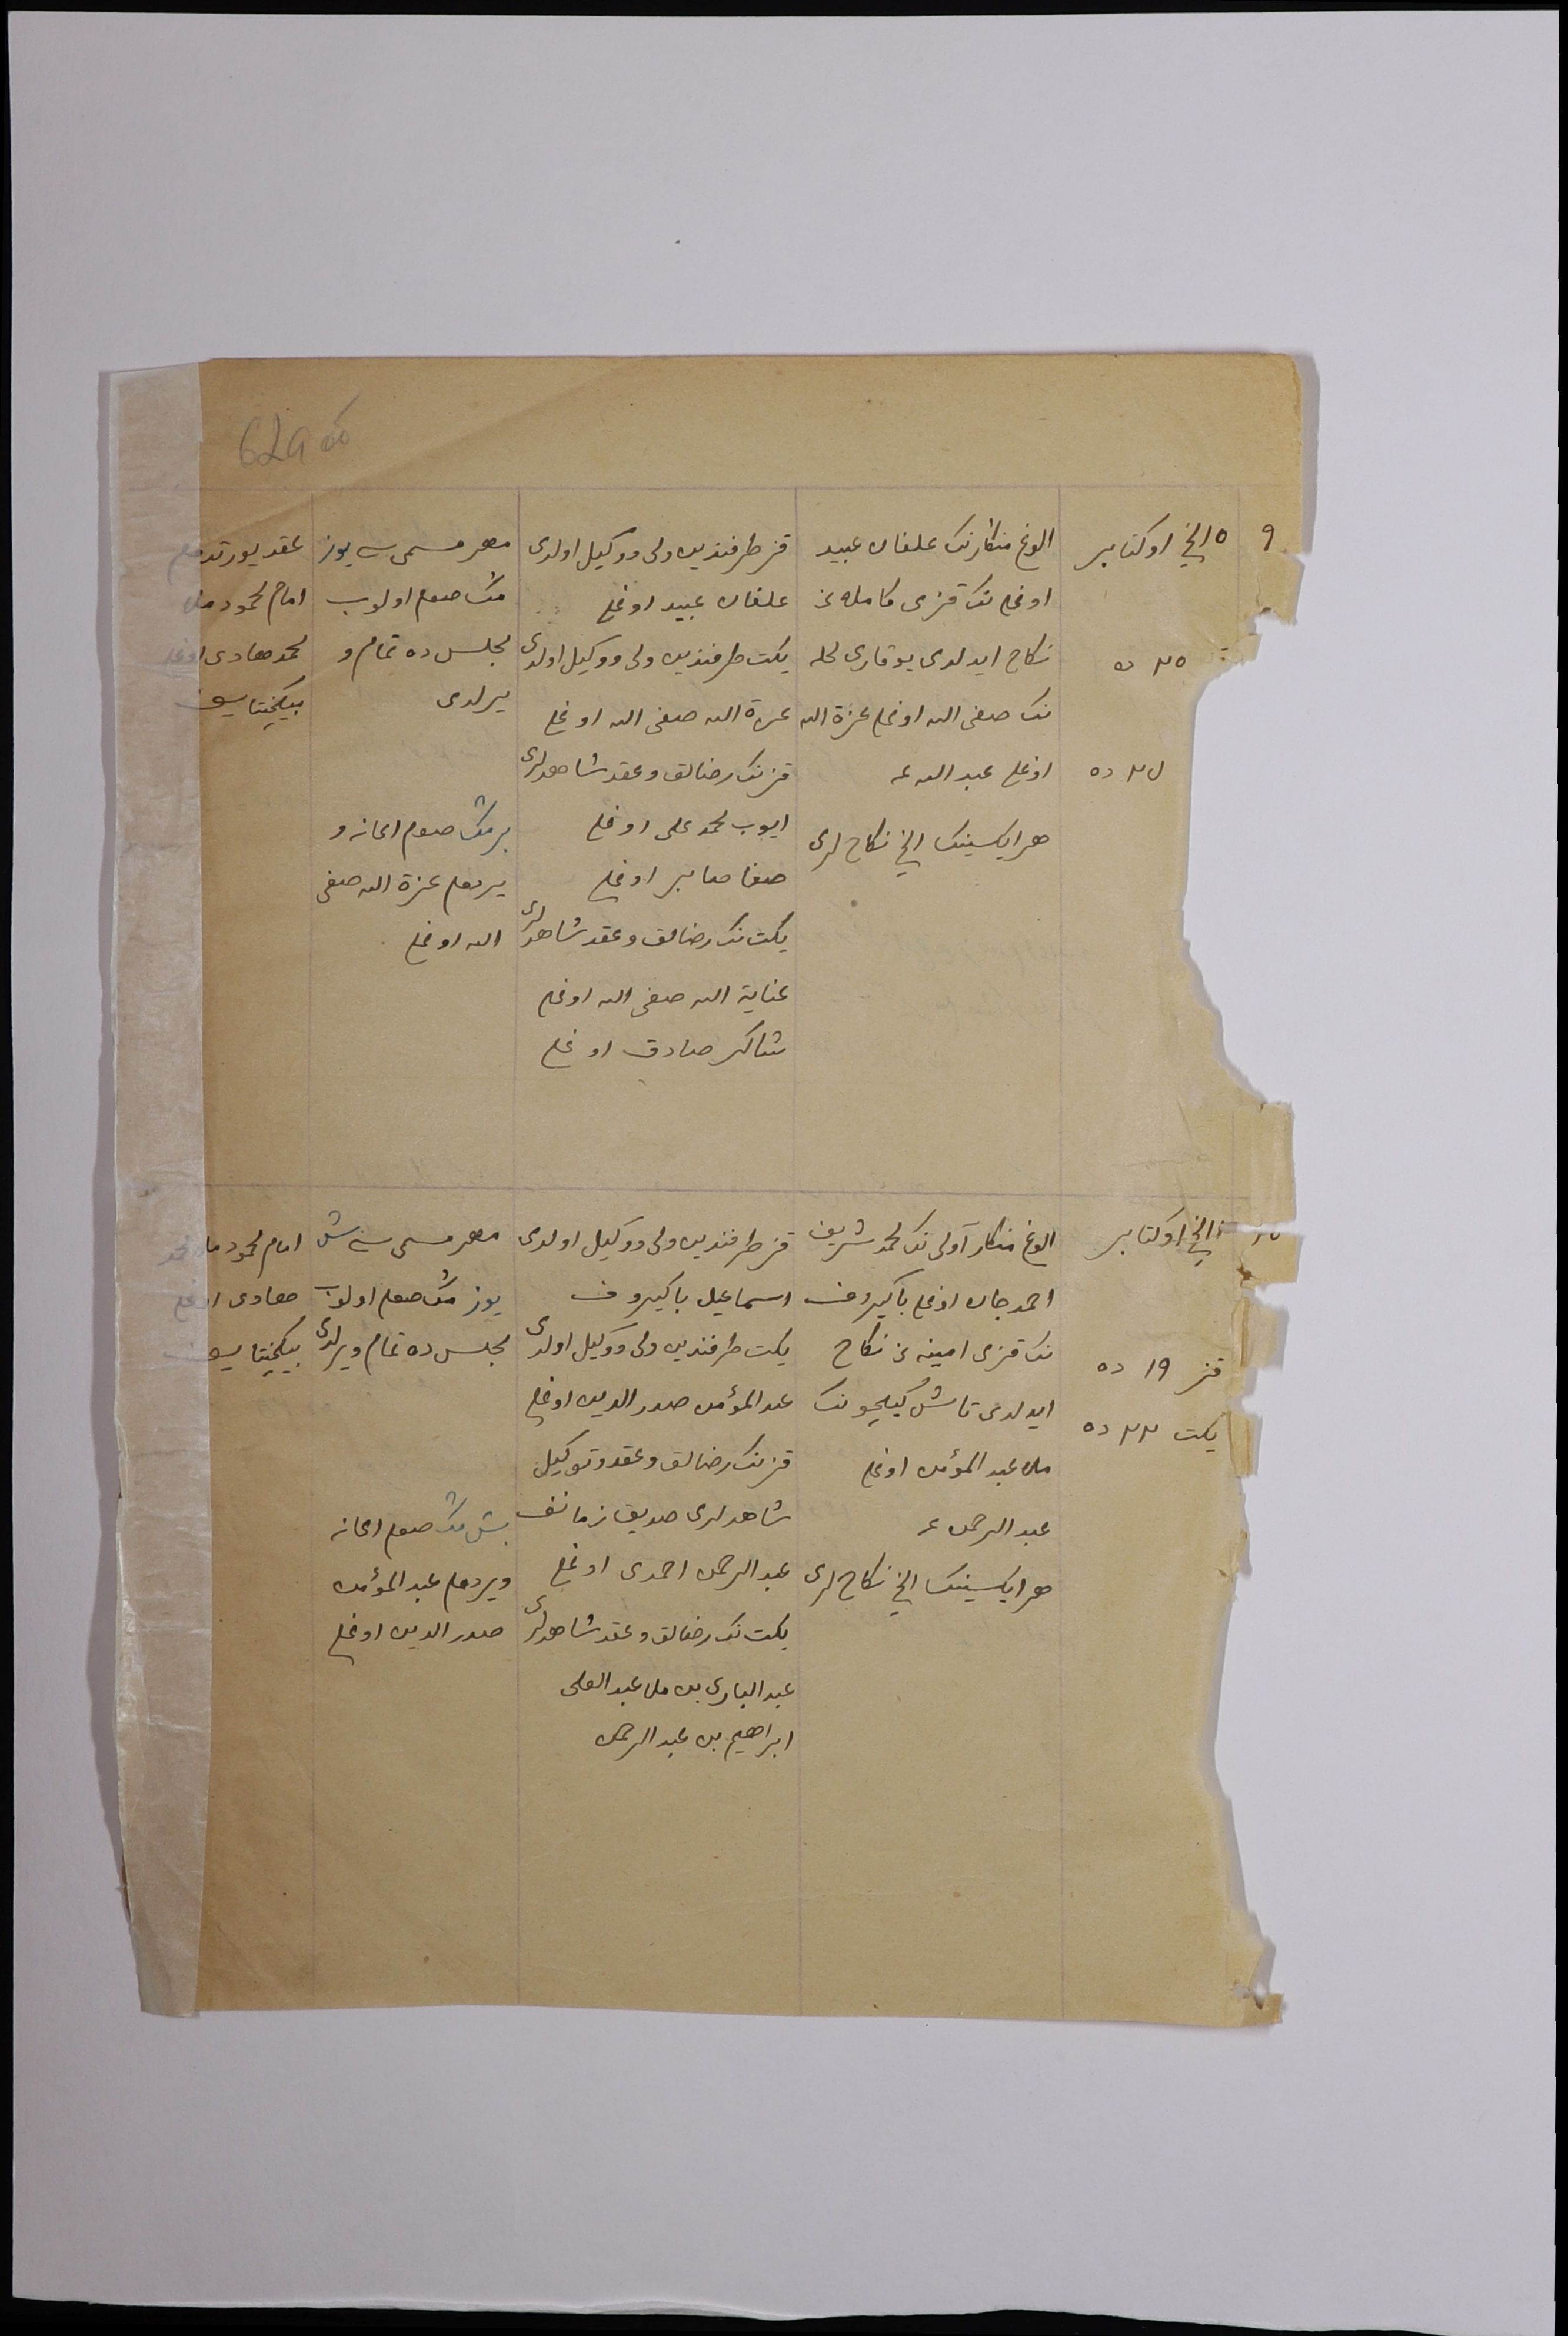 629
٩
٥ نچی اوکتابر
٢٥ ده
الوغ منگارنک علفان عبید
اوغلی نک قزی کامله نی
نکاح ایدلدی یوقاری
نک صفی الله اوغلی عزة الله
اوغلی عبد الله غه
هر ایکسینک ١ نچی نکاح لری
قز طرفندین ولی و وکیل اولدی
علفان عبید اوغلی
یکت طرفندین ولی و وکیل اولدی
عزة الله صفی الله اوغلی
قزنک رضالق و عقد شاهدلری
ایوب محمد علی اوغلی
صفا صابر اوغلی
یکت نک رضالق و عقد شاهدلری
عنایة الله صفی الله اوغلی
شاکر صادق اوغلی
مهر مسمی سی یوز
منک صوم اولوب
مجلس ده تمام و
یرلدی
بر منک صوم اعانه و
یردم عزة الله صفی
الله اوغلی
عقد یورتدم
امام محمود
محمد هادی اوغلی
بیکجنتایف
نچی اوکتابر
قز ١٩ ده
یکت ٢٣ ده
الوغ منگار آولی نک محمد شریف
احمد جان اوغلی باکیروف
نک قزی امینه نی نکاح
ایدلدی تاش کیچو نک
ملا عبد المؤمن اوغلی
عبد الرحمن غه
هر ایکسینک ١ نچی نکاح لری
قز طرفندین ولی و وکیل اولدی
اسماعیل باکیروف
یکت طرفندین ولی و وکیل اولدی
عبد المؤمن صدر الدین اوغلی
قزنک رضالق و عقد و توکیل
شاهدلری صدیق زمانف
عبد الرحمن احمدی اوغلی
یکت نک رضالق و عقد شاهدلری
عبد الباری بن ملا عبد العلی
ابراهیم بن عبد الرحمن
مهر مسمی سی بش
یوز منک صوم اولوب
مجلس ده تمام ویرلدی
بش منک صوم اعانه
ویردم عبد المؤمن
صدر الدین اوغلی
امام محمود
هادی اوغلی
بیکجنتایف